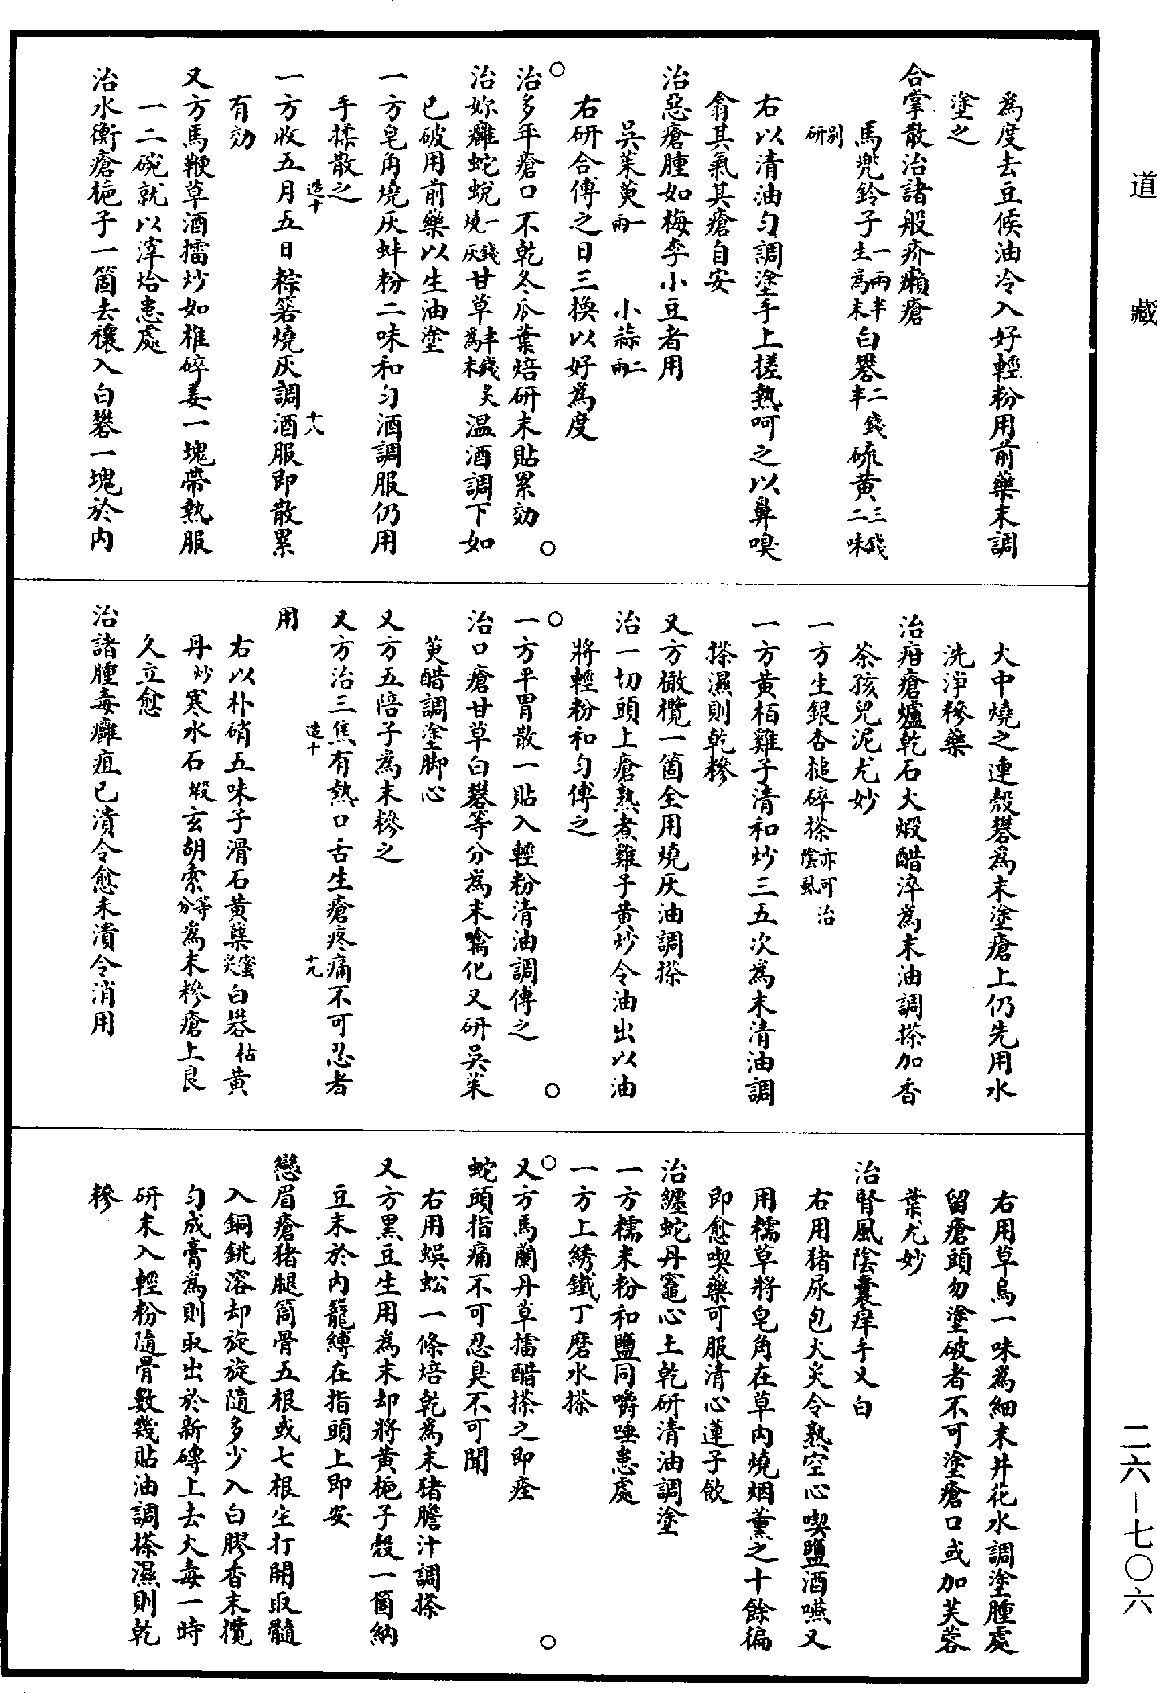 道藏
爲度去豆候油冷入好輕粉用前藥末調
塗之
合掌散治諸般疥癩瘡
馬兜鈴子一兩半生爲末白礬二錢半硫黃三錢二味
別研
右以清油勻調塗手上搓熱呵之以鼻嗅
翕其氣其瘡自安
治惡瘡腫如梅李小豆者用
吳茱萸一兩 小蒜二兩
右研合傅之日三換以好爲度
治多年瘡口不乾冬瓜葉焙研末貼累効
治妳癰蛇蛻一錢燒灰甘草半錢爲末炙溫酒調下如
已破用前藥以生油塗
一方皂角燒灰蚌粉二味和勻酒調服仍用
手揉散之
一方收五月五日粽箬燒灰調酒服即散累
造十 十八
有効
又方馬鞭草酒擂炒如椎碎姜一塊帶熱服
一二碗就以滓炲患處
治水衡瘡梔子一箇去穰入白礬一塊於內
火中燒之連殼礬爲末塗瘡上仍先用水
洗淨糝藥
治疳瘡爐乾石火煅醋淬爲末油調搽加香
茶孩兒泥尤妙
一方生銀杏搥碎搽亦可治陰虱
一方黃栢雞子清和炒三五次爲末清油調
搽濕則乾糝
又方橄欖一箇全用燒灰油調搽
治一切頭上瘡熟煮雞子黃炒令油出以油
將輕粉和勻傅之
一方平胃散一貼入輕粉清油調傅之
治口瘡甘草白礬等分爲末噙化又研吳茱
萸醋調塗脚心
又方五陪子爲末糝之
又方治三焦有熱口舌生瘡疼痛不可忍者
造十 十九
用
右以朴硝五味子滑石黃蘗蜜炙白礬枯黃
丹炒寒水石煅玄胡索等分爲末糝瘡上良
久立愈
治諸腫毒癰疽已潰令愈未潰令消用
右用草烏一味爲細末井花水調塗腫處
留瘡頭勿塗破者不可塗瘡口或加芙蓉
葉尤妙
治腎風陰囊痒手又白
右用猪尿包火炙令熟空心喫鹽酒嚥又
用糯草將皂角在草內燒烟薰之十餘徧
即愈喫藥可服清心蓮子飲
治纏蛇丹竈心土乾研清油調塗
一方糯米粉和鹽同嚼唾患處
一方上銹鐵丁磨水搽
又方馬蘭丹草擂醋搽之即痊
蛇頭指痛不可忍臭不可聞
右用蜈蚣一條焙乾爲末猪膽汁調搽
又方黑豆生用爲末却將黃梔子殼一箇納
豆末於內籠縛在指頭上即安
戀眉瘡猪腿筒骨五根或七根生打開取髓
入銅銚溶却旋旋隨多少入白膠香末攪
勻成膏爲則取出於新磚上去火毒一時
研末入輕粉隨骨數幾貼油調搽濕則乾
糝
二六—七〇六